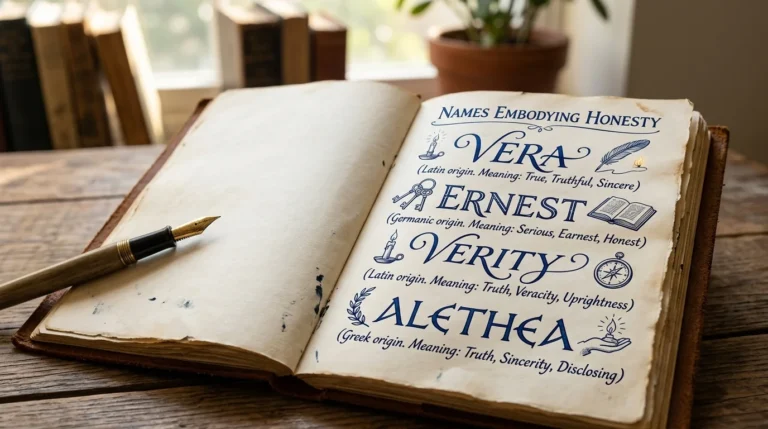 NAMES EMBODYING HONESTY
VERA
(Latin origin. Meaning: True, Truthful, Sincere)
ERNEST
(Germanic origin. Meaning: Serious, Earnest, Honest)
VERITY
(Latin origin. Meaning: Truth, Veracity, Uprightness)
ALETHEA
(Greek origin. Meaning: Truth, Sincerity, Disclosing)